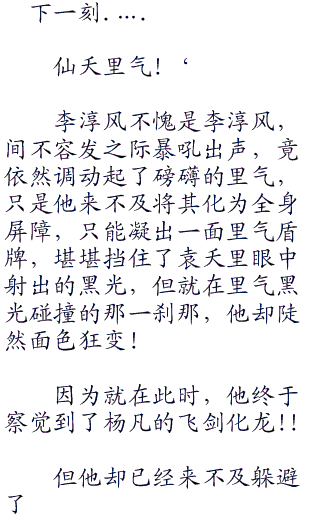 下一刻.….
仙天里气！‘
李淳风不愧是李淳风，
间不容发之际暴吼出声，竟
依然调动起了磅礴的里气，
只是他来不及将其化为全身
屏障，只能凝出一面里气盾
牌，堪堪挡住了袁天里眼中
射出的黑光，但就在里气黑
光碰撞的那一刹那，他却陡
然面色狂变！
因为就在此时，他终于
察觉到了杨凡的飞剑化龙!!
但他却已经来不及躲避
了